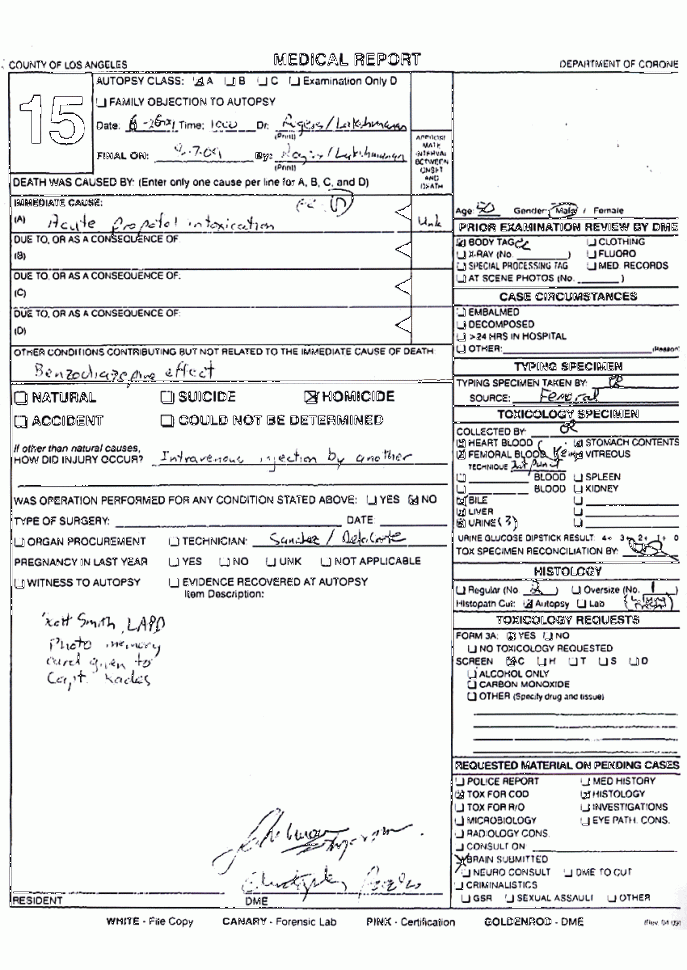 COUNTY OF LOS ANGELES
MEDICAL REPORT
DEPARTMENT OF CORONE
15
AUTOPSY CLASS: A B C Examination Only D
FAMILY OBJECTION TO AUTOPSY
Date: Time: 1000 Dr. Rogers/Lakshmanan
(Print)
FINAL ON: By: Rogers/Lakshmanan
(Print)
APPROXI-
MATE
INTERVAL
BETWEEN
ONSET
AND
DEATH
DEATH WAS CAUSED BY: (Enter only one cause per line for A, B, C, and D)
IMMEDIATE CAUSE:
(A) Acute propofol intoxication
Unk
DUE TO, OR AS A CONSEQUENCE OF
(B)
DUE TO, OR AS A CONSEQUENCE OF:
(C)
DUE TO, OR AS A CONSEQUENCE OF:
(D)
OTHER CONDITIONS CONTRIBUTING BUT NOT RELATED TO THE IMMEDIATE CAUSE OF DEATH:
Benzodiazepine effect
NATURAL SUICIDE HOMICIDE
ACCIDENT COULD NOT BE DETERMINED
If other than natural causes,
HOW DID INJURY OCCUR? Intravenous injection by another
WAS OPERATION PERFORMED FOR ANY CONDITION STATED ABOVE: YES NO
TYPE OF SURGERY: DATE:
ORGAN PROCUREMENT TECHNICIAN: Sanchez /
PREGNANCY IN LAST YEAR YES NO UNK NOT APPLICABLE
WITNESS TO AUTOPSY EVIDENCE RECOVERED AT AUTOPSY
Item Description:
Scott Smith, LAPD
Photo memory
card given to
Capt. Kades
RESIDENT
DME
Age: 50 Gender: Male / Female
PRIOR EXAMINATION REVIEW BY DME
BODY TAG CLOTHING
X-RAY (No. ) FLUORO
SPECIAL PROCESSING TAG MED RECORDS
AT SCENE PHOTOS (No. )
CASE CIRCUMSTANCES
EMBALMED
DECOMPOSED
>24 HRS IN HOSPITAL
OTHER: (Reason)
TYPING SPECIMEN
TYPING SPECIMEN TAKEN BY:
SOURCE: Femoral
TOXICOLOGY SPECIMEN
COLLECTED BY:
HEART BLOOD STOMACH CONTENTS
FEMORAL BLOOD VITREOUS
TECHNIQUE
BLOOD SPLEEN
BLOOD KIDNEY
BILE
LIVER
URINE (3)
URINE GLUCOSE DIPSTICK RESULT: 4+ 3+ 2+ 1+ 0
TOX SPECIMEN RECONCILIATION BY:
HISTOLOGY
Regular (No. ) Oversize (No. 1)
Histopath Cut: Autopsy Lab
TOXICOLOGY REQUESTS
FORM 3A: YES NO
NO TOXICOLOGY REQUESTED
SCREEN C H T S D
ALCOHOL ONLY
CARBON MONOXIDE
OTHER (Specify drug and tissue)
REQUESTED MATERIAL ON PENDING CASES
POLICE REPORT MED HISTORY
TOX FOR COD HISTOLOGY
TOX FOR R/O INVESTIGATIONS
MICROBIOLOGY EYE PATH. CONS.
RADIOLOGY CONS.
CONSULT ON
BRAIN SUBMITTED
NEURO CONSULT DME TO CUT
CRIMINALISTICS
GSR SEXUAL ASSAULT OTHER
WHITE - File Copy CANARY - Forensic Lab PINK - Certification GOLDENROD - DME